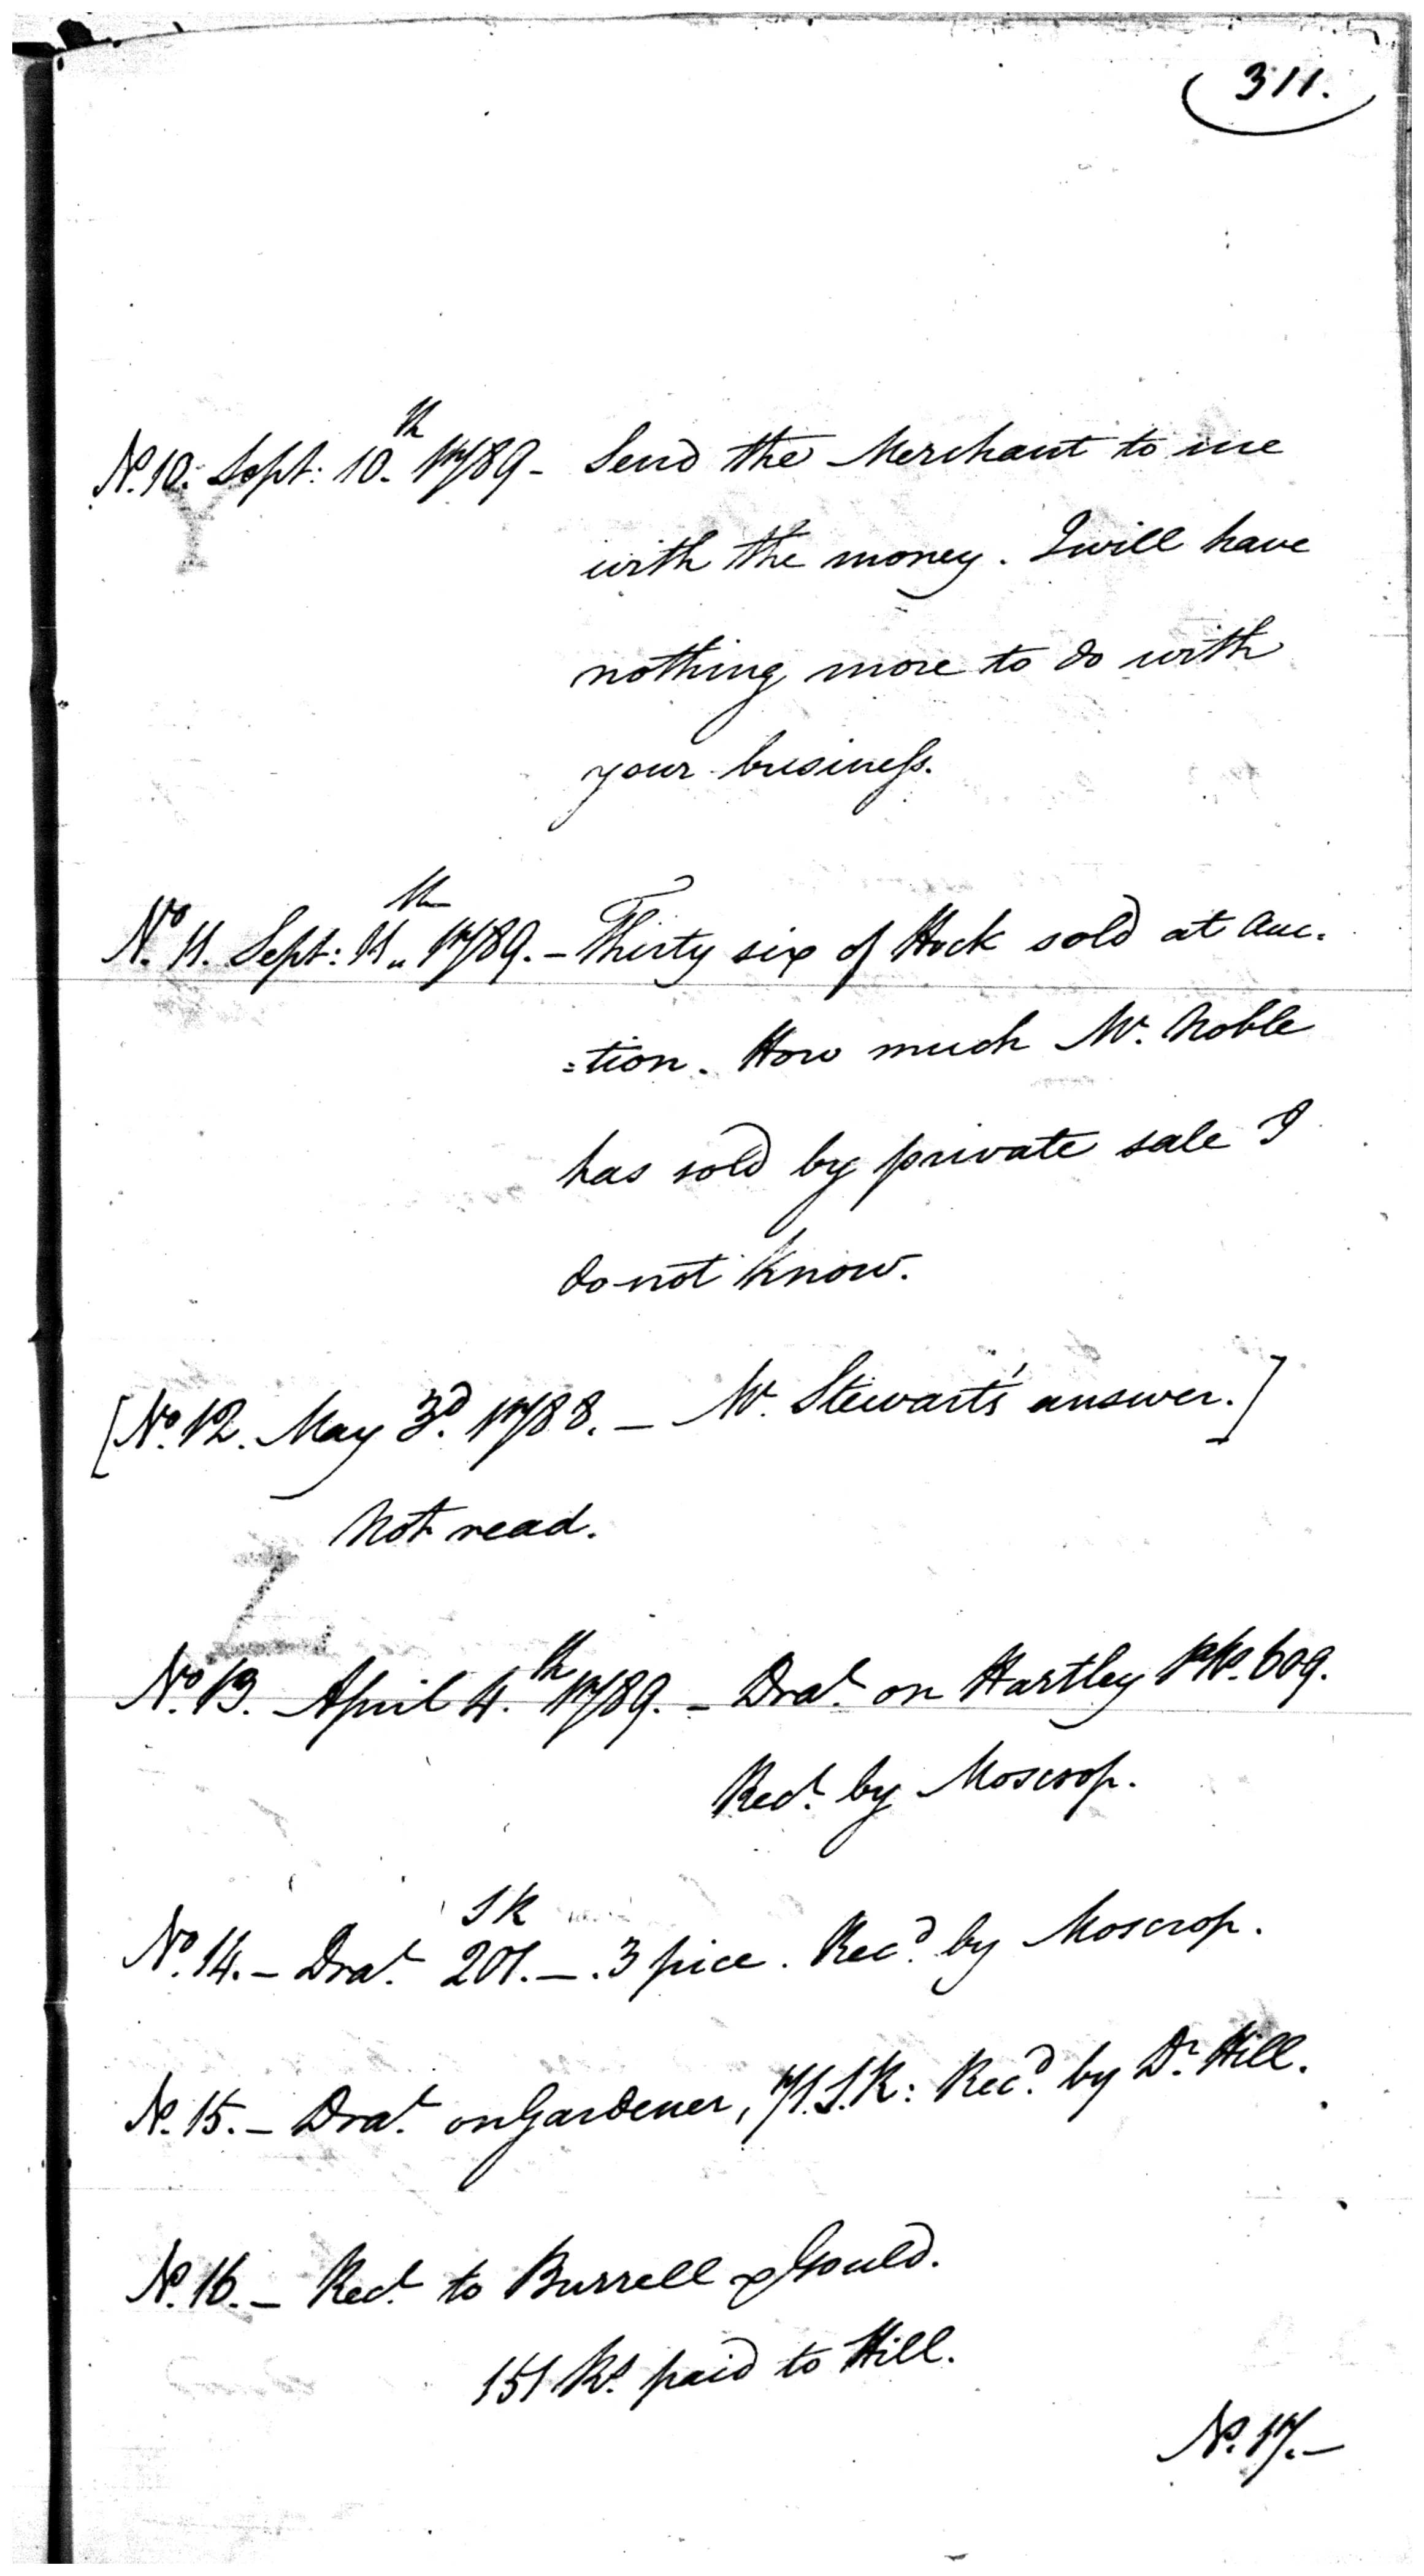 311.
No. 10. Sept: 10th 1789 - Send the Merchant to me
with the money. I will have
nothing more to do with
your business.
No. 11. Sept: 11th 1789. - Thirty six of Hock sold at auc.
=tion. How much Mr. Noble
has sold by private sale I
do not know.
[No. 12. May 3d. 1788. - Mr. Stewart's answer.]
Not read.
No. 13. April 4th 1789. - Drat. on Hartley 609.
Rect. by Moscrop.
S R
No. 14. - Drat. 201. - . 3 pice. Recd. by Moscrop.
No. 15. - Drat. on Gardener, 71. S. R: Recd. by Dr. Hill.
No. 16. - Rect. to Burrell & Gould.
151 Rs. paid to Hill.
No. 17. -